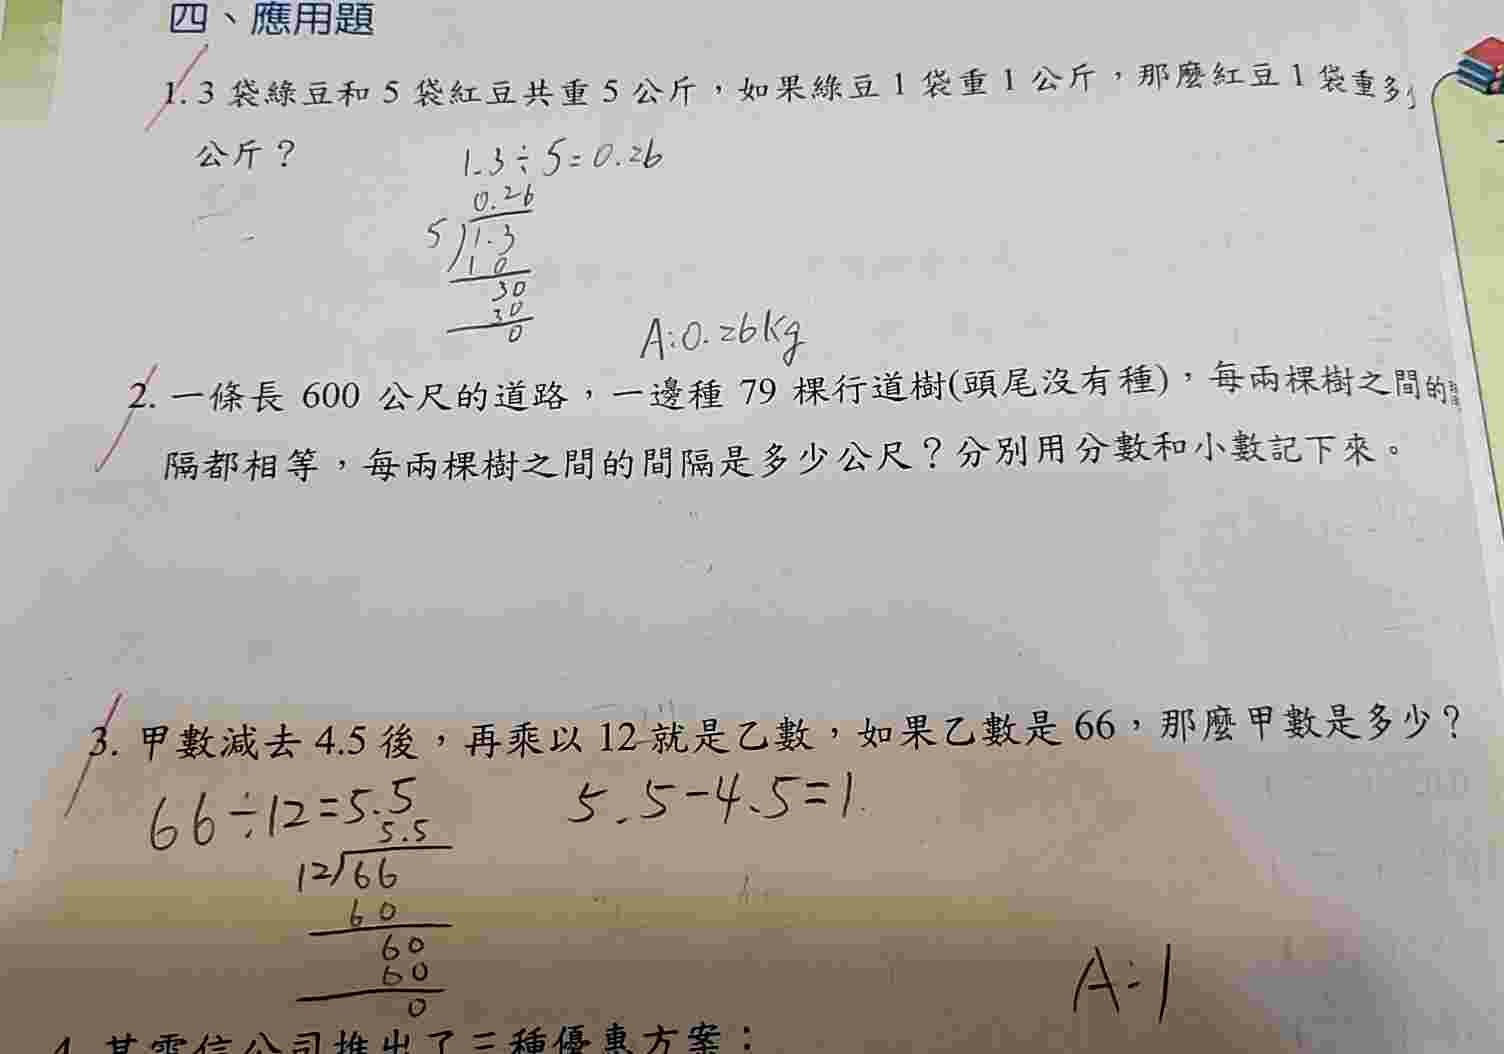 四、應用題
1. 3 袋綠豆和 5 袋紅豆共重 5 公斤，如果綠豆 1 袋重 1 公斤，那麼紅豆 1 袋重多
公斤？
1.3÷5=0.26
0.26
5
1.3
1 0
30
30
0
A:0.26kg
2. 一條長 600 公尺的道路，一邊種 79 棵行道樹(頭尾沒有種)，每兩棵樹之間的
隔都相等，每兩棵樹之間的間隔是多少公尺？分別用分數和小數記下來。
3. 甲數減去 4.5 後，再乘以 12 就是乙數，如果乙數是 66，那麼甲數是多少？
66÷12=5.5
5.5-4.5=1
5.5
12
66
60
60
60
0
A:1
4. 某電信公司推出了三種優惠方案：